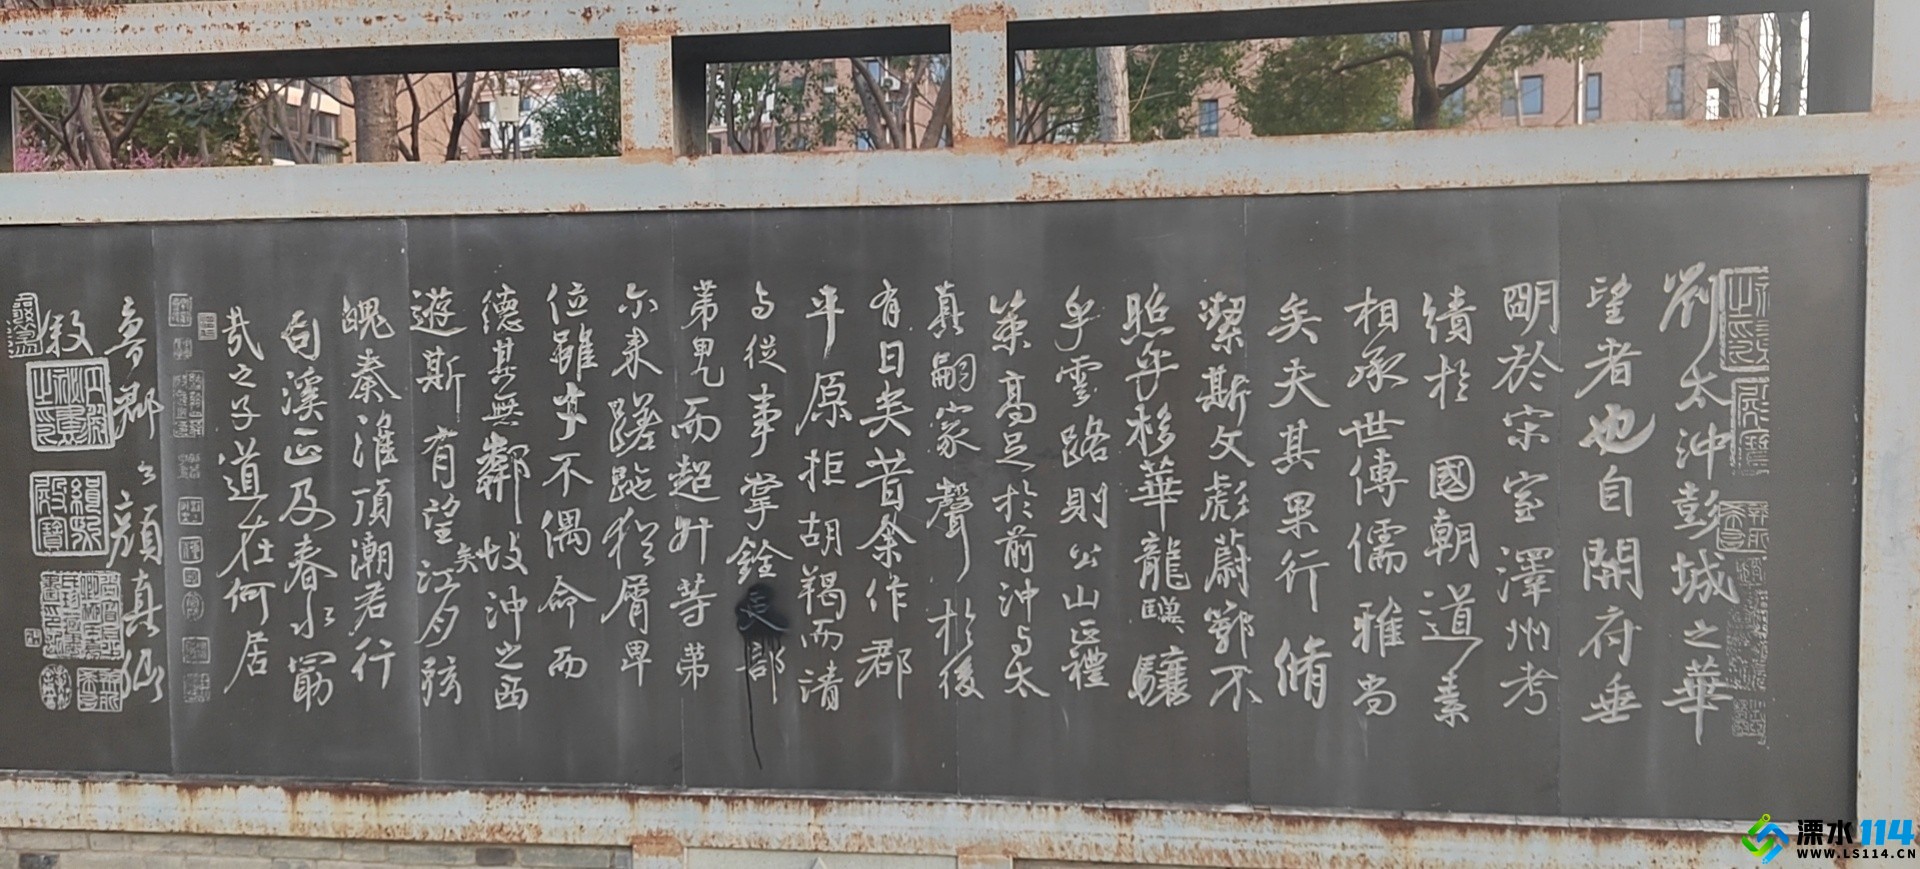 劉太沖彭城之華
望者也自開府垂
明於宋室澤州考
績於國朝道素
相承世傳儒雅尚
矣夫其果行脩
潔斯文彪蔚鄂不
照乎移華龍驥驤
乎雲路則公山正禮
策高足於前沖与太
真嗣家聲於後
有日矣昔余作郡
平原拒胡羯而清
与從事掌銓部
第兄而超升等第
尓来蹉跎猶屑卑
位雖才不偶命而
德其無鄰故沖之西
遊斯有望矣江月弦
魄秦淮頂潮君行
句溪正及春水勖
哉之子道在何居
魯郡公顏真卿
叙
溧水114
WWW.LS114.CN